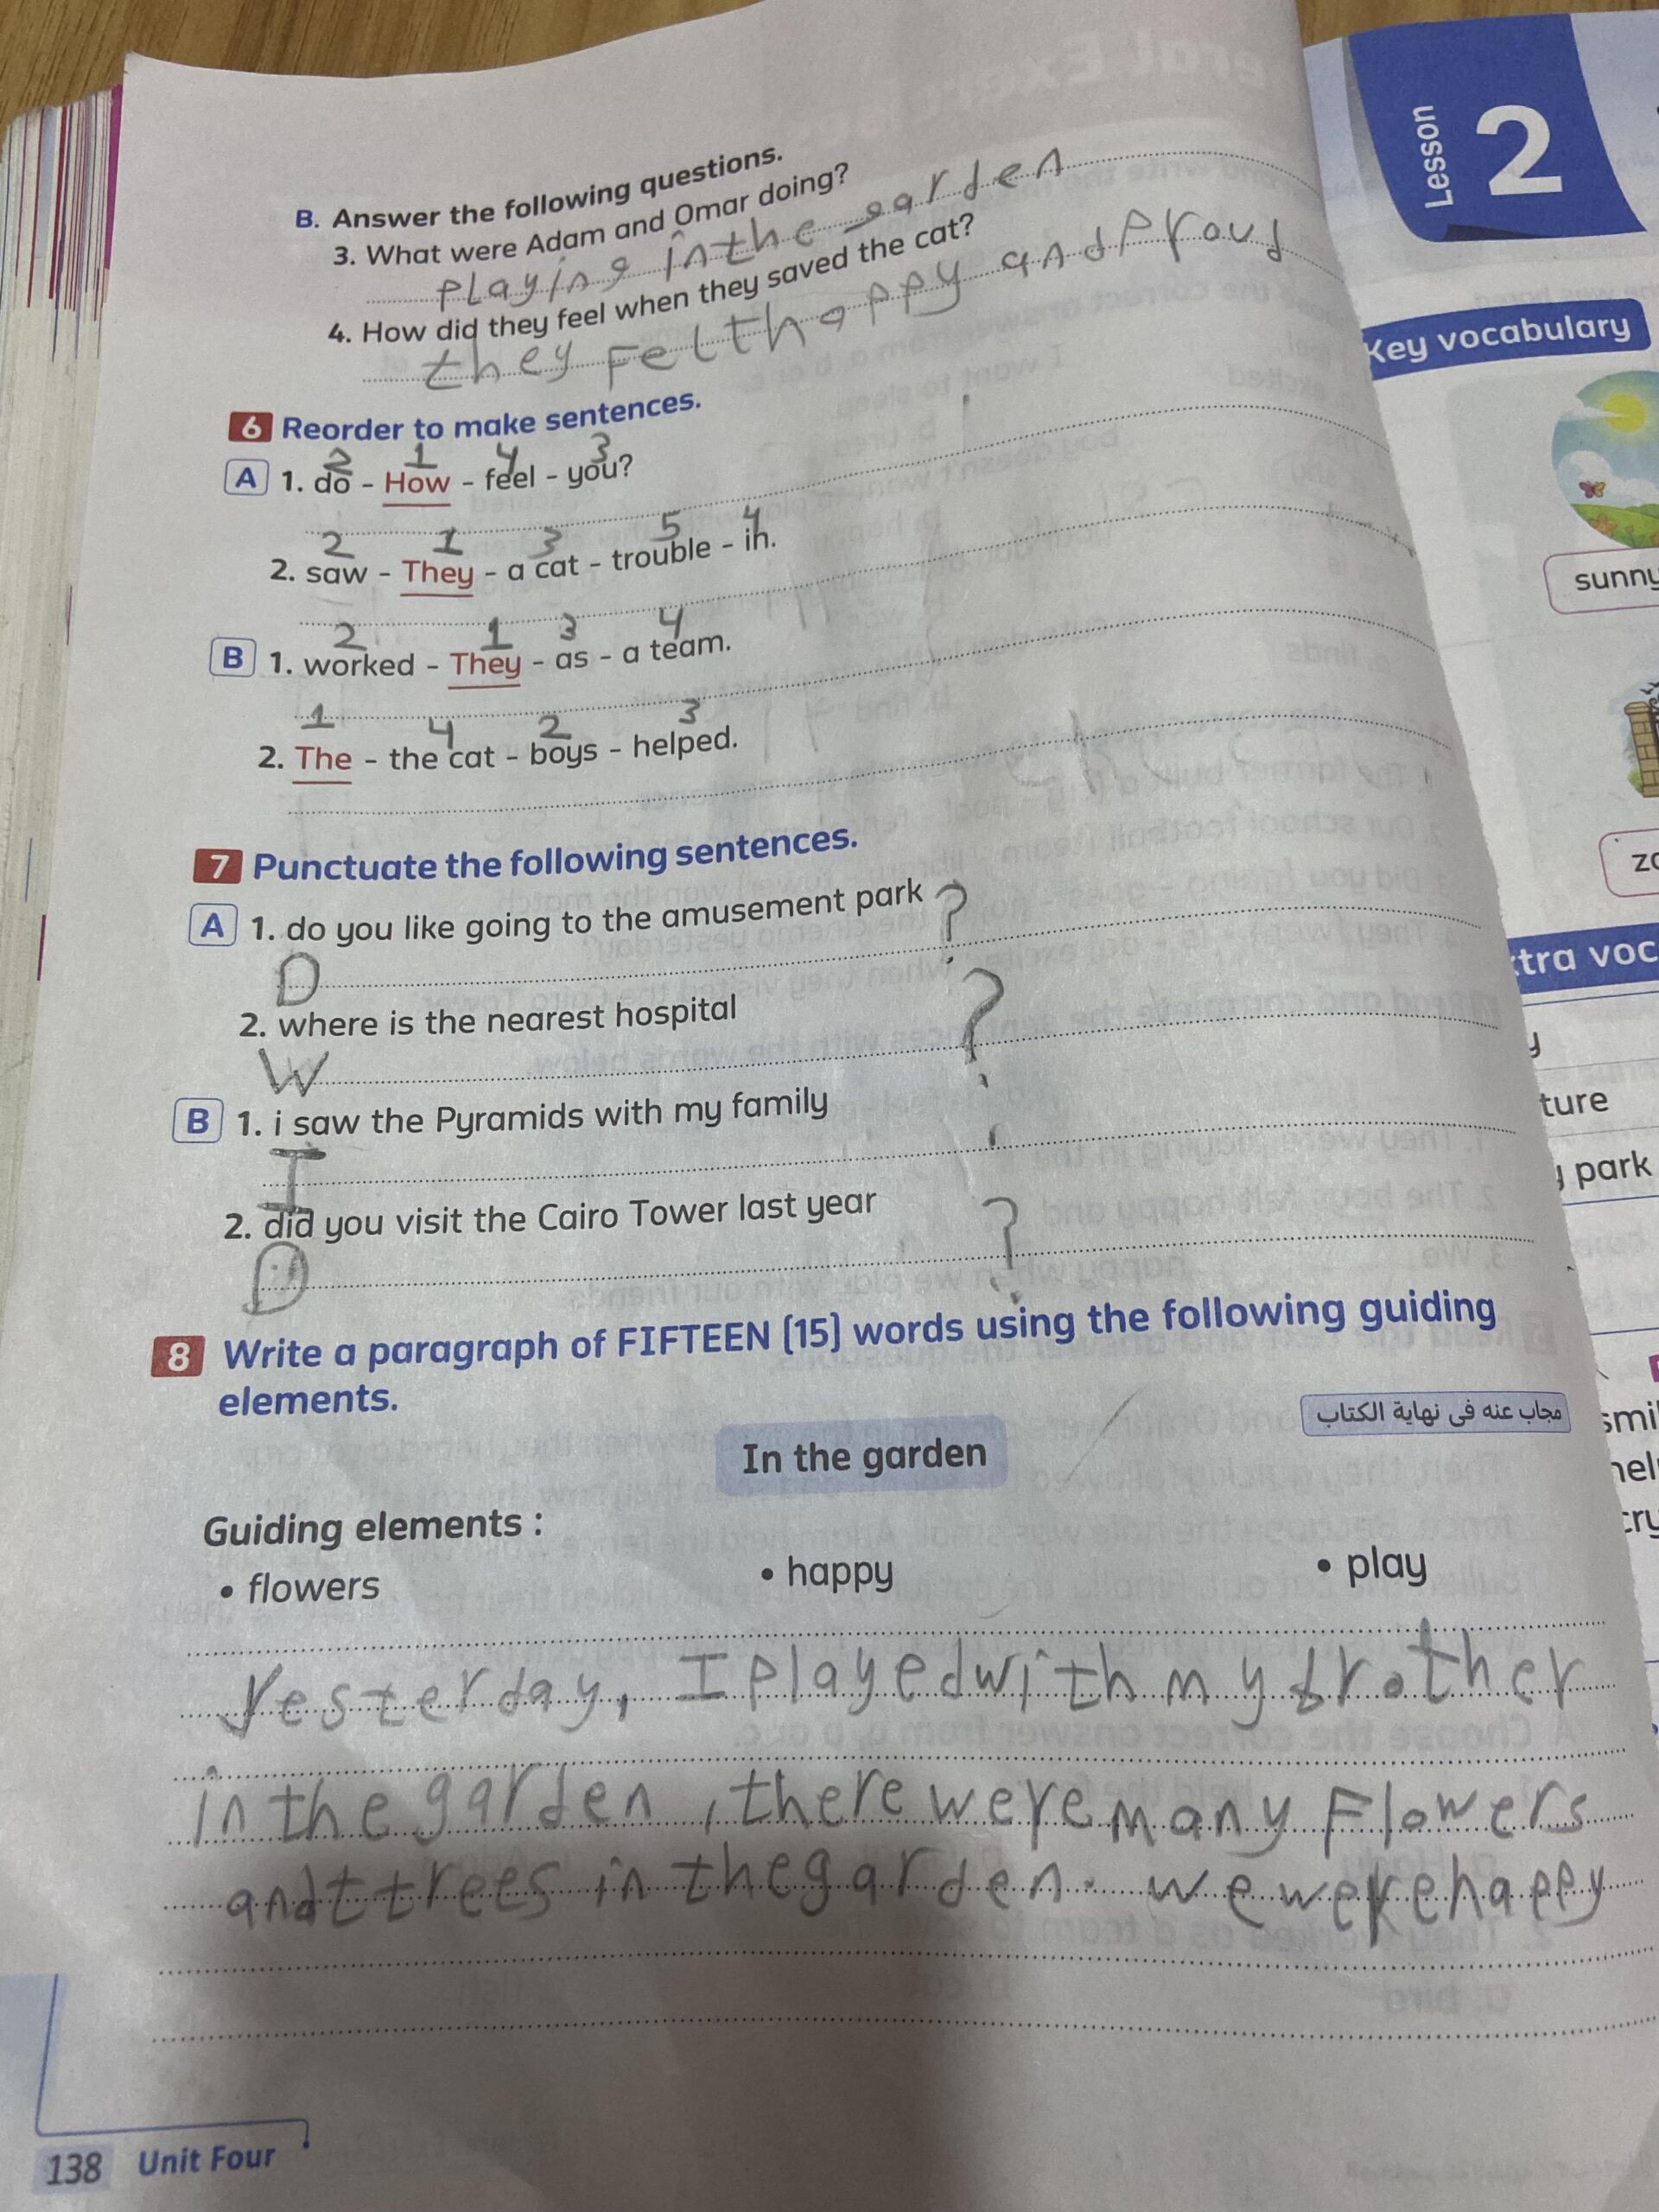 B. Answer the following questions.
3. What were Adam and Omar doing?
playing in the garden
4. How did they feel when they saved the cat?
they Felt happy and Proud
6 Reorder to make sentences.
2 1 4 3
A 1. do - How - feel - you?
2 1 3 5 4
2. saw - They - a cat - trouble - in.
2 1 3 4
B 1. worked - They - as - a team.
1 4 2 3
2. The - the cat - boys - helped.
7 Punctuate the following sentences.
A 1. do you like going to the amusement park ?
D
2. where is the nearest hospital ?
W
B 1. i saw the Pyramids with my family
I .
2. did you visit the Cairo Tower last year ?
D
8 Write a paragraph of FIFTEEN (15) words using the following guiding
elements.
مجاب عنه فى نهاية الكتاب
In the garden
Guiding elements :
• flowers • happy • play
Yesterday, I played with my brother
in the garden , there were many Flowers
and ttrees in the garden. we were happy
138 Unit Four
Lesson 2
Key vocabulary
sunny